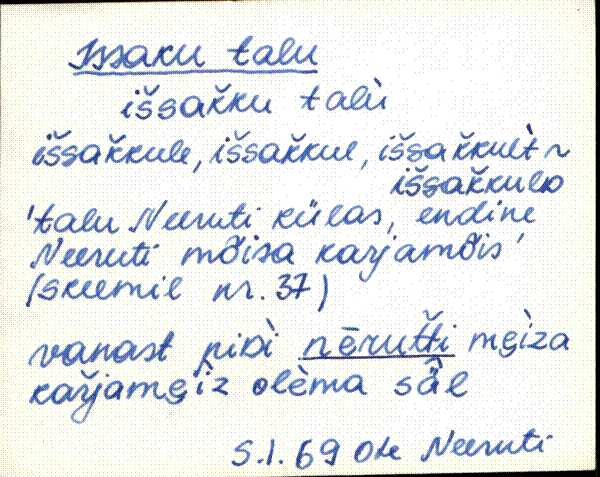 Issaku talu
išsaǩku talù
išsaǩkule, išsaǩkul, išsaǩkult̀ ~
išsaǩkulə
'talu Neeruti külas, endine
Neeruti mõisa karjamõis'
(skeemil nr. 37)
vanast pid̀i nēruťti mẹiza
kařjamẹ̀iz olèma sā̂l
S.I. 69 Ote Neeruti